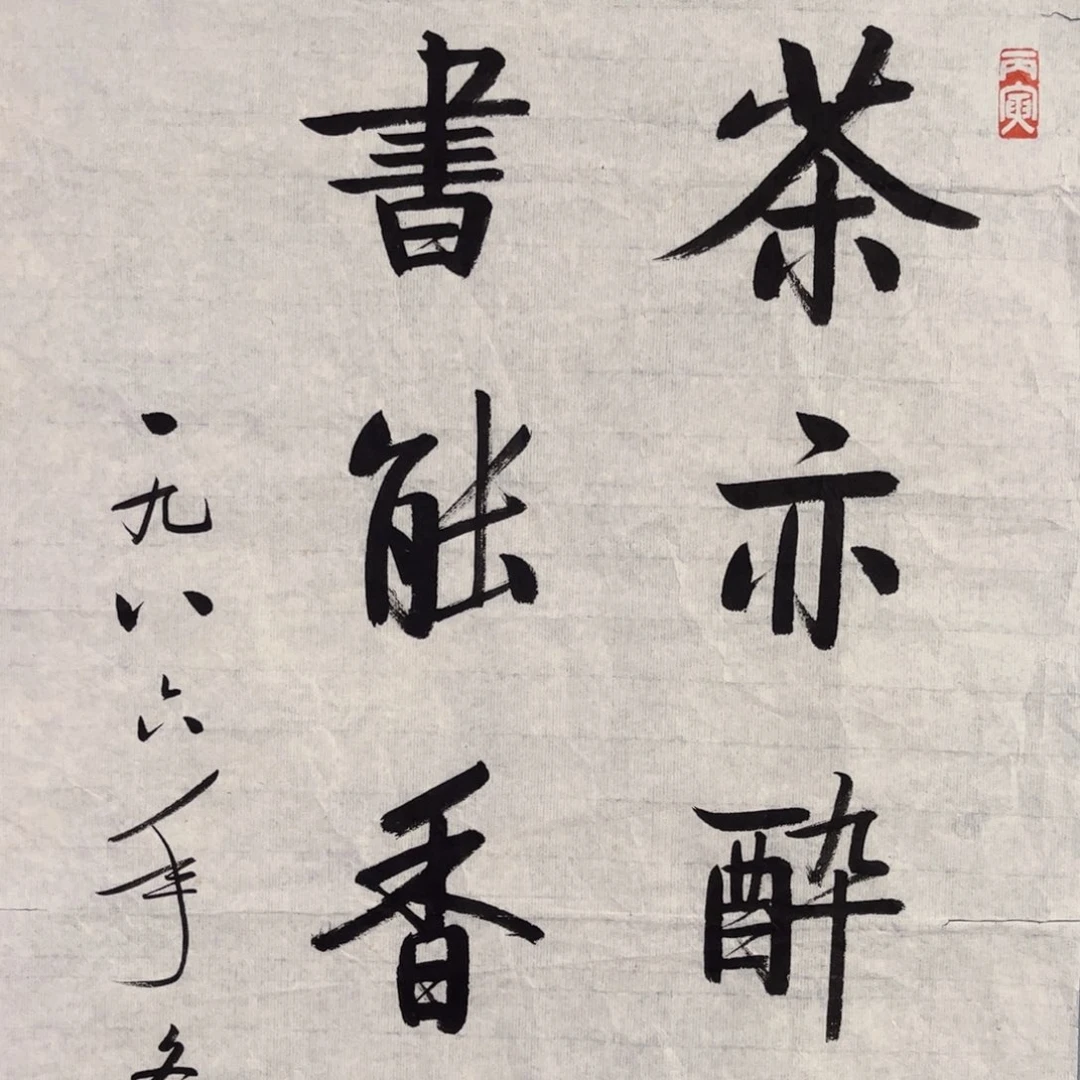 丙寅
茶亦醉
書能香
一九八六年冬